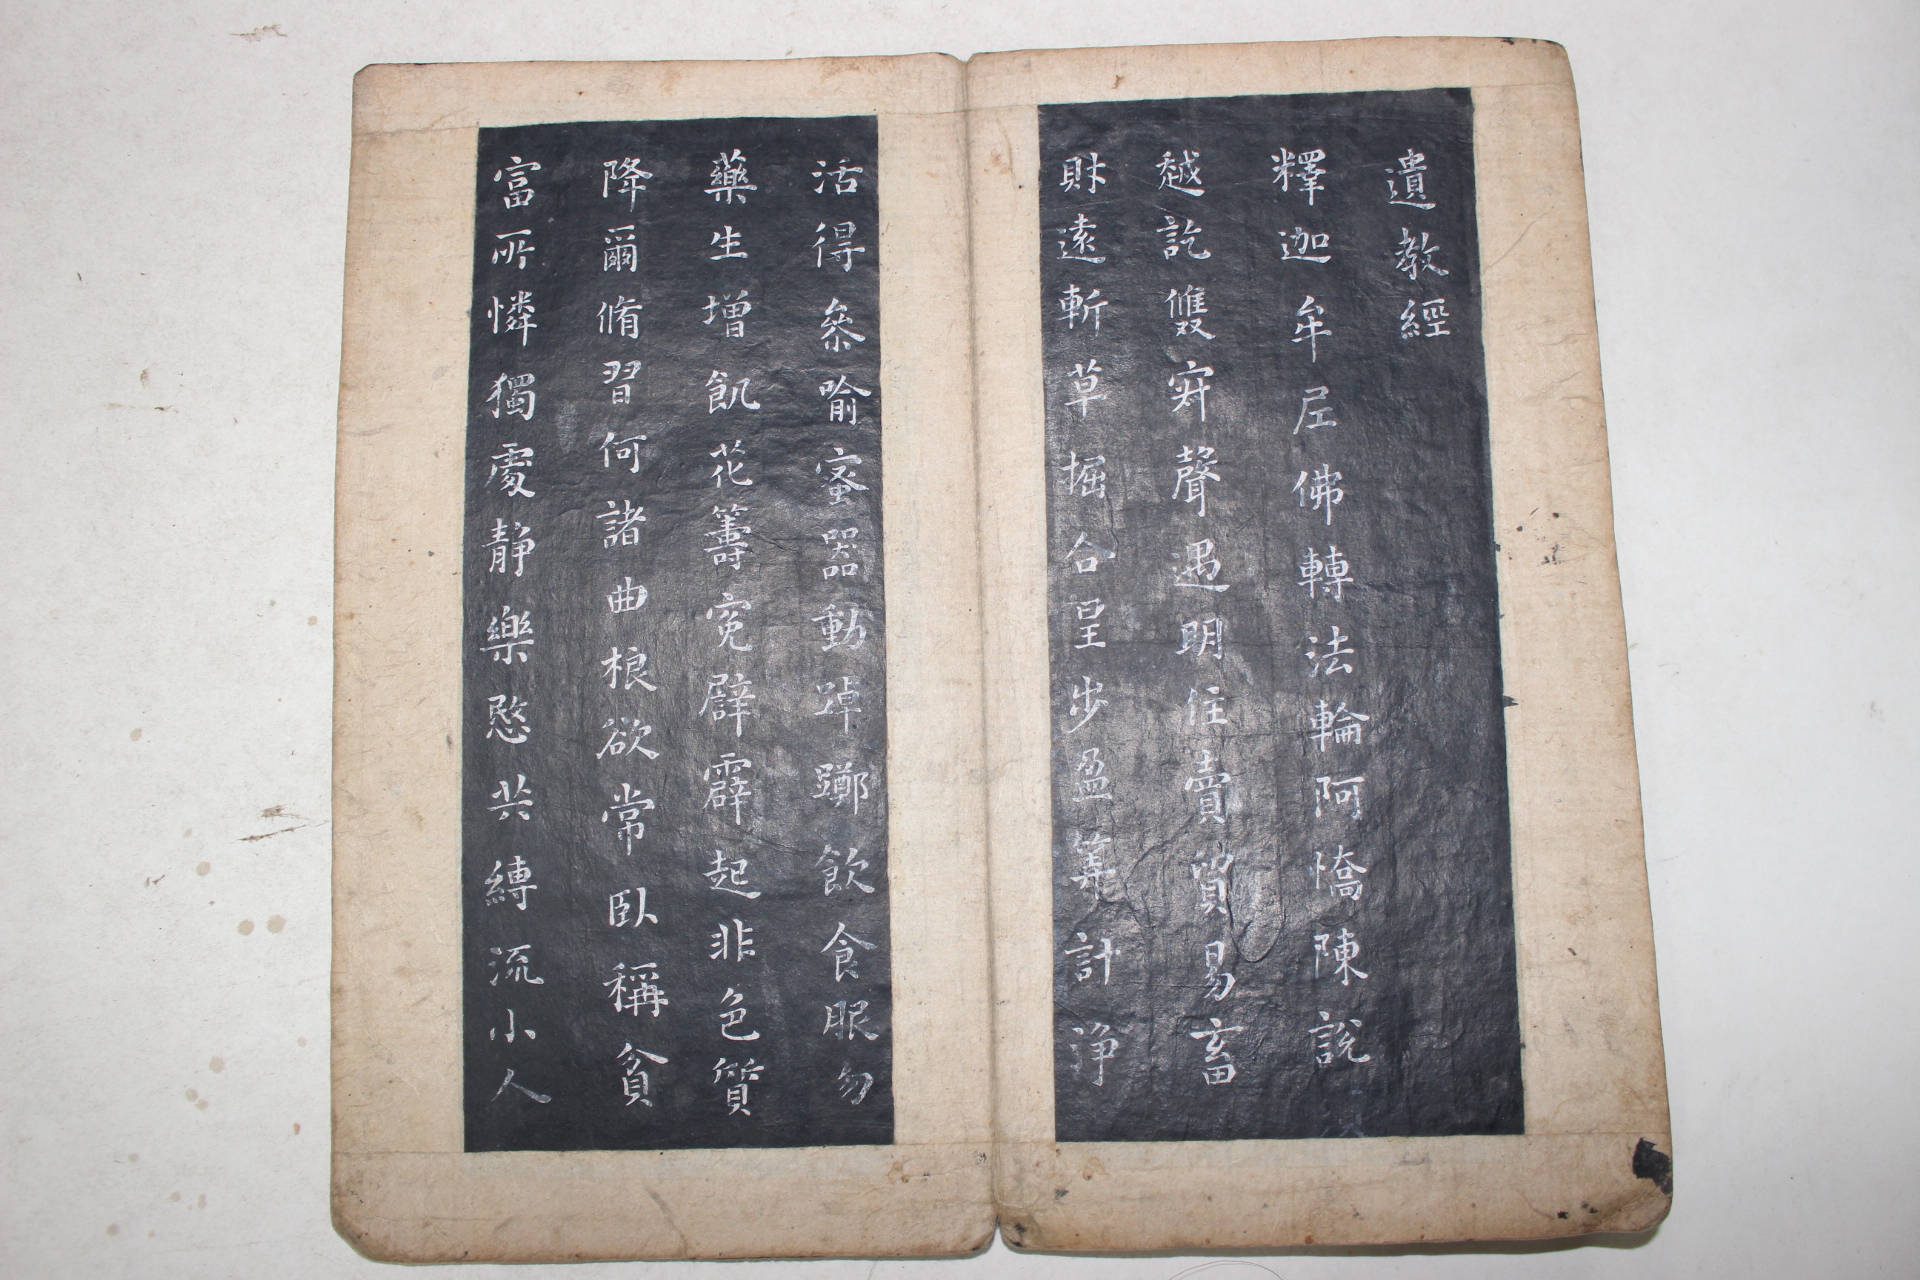 遺教經
釋迦牟尼佛轉法輪阿憍陳說
越訖雙寂聲遇明住賣貿易畜
財遠斬草掘合呈步盈筭計淨
活得叅喻蜜器動踔躑飲食服勿
藥生增飢花籌寃礔霹起非色質
降爾脩習何諸曲根欲常臥稱貧
富所憐獨處靜樂愍共縛流小人